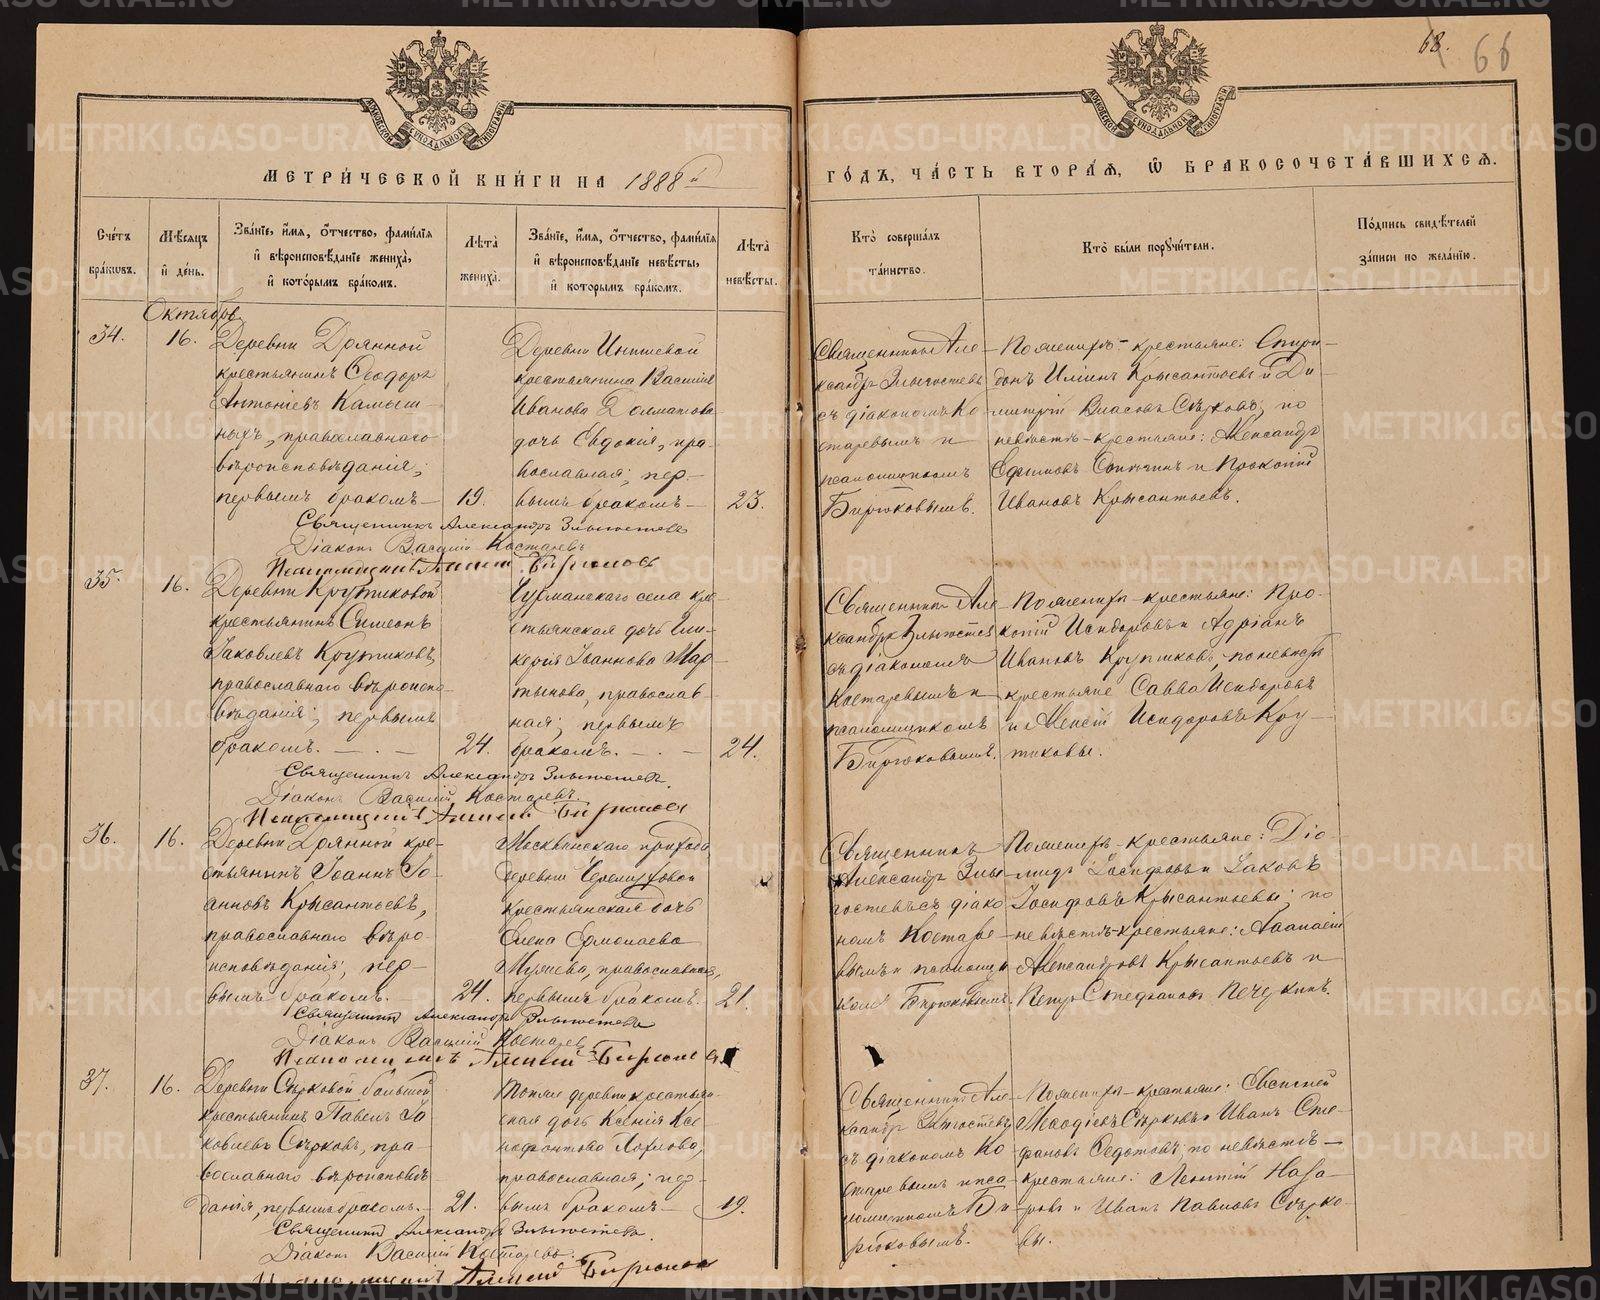 68. 66
МЕТРИ́ЧЕСКОЙ КНИ́ГИ НА 1888й
ГО́ДЪ, ЧА́СТЬ ВТОРА́Я, Ѿ БРАКОСОЧЕТА́ВШИХСЯ.
Сче́тъ бра́ковъ.
Мѣ́сяцъ и҆ де́нь.
Зва́нїе, и҆́мя, ѻ҆́тчество, фами́лїя
и҆ вѣроисповѣ́данїе жениха̀,
и҆ кото́рымъ бра́комъ.
Лѣта̀ жениха̀.
Зва́нїе, и҆́мя, ѻ҆́тчество, фами́лїя
и҆ вѣроисповѣ́данїе невѣ́сты,
и҆ кото́рымъ бра́комъ.
Лѣта̀ невѣ́сты.
Кто̀ соверша́лъ
та́инство.
Кто̀ бы́ли поручи́тели.
По́дпись свидѣ́телей
за́писи по жела́нїю.
Октябрь
34.
16.
Деревни Дрянной
крестьянинъ Ѳеодоръ
Антоніевъ Камыш-
ныхъ, православнаго
вѣроисповѣданія,
первымъ бракомъ
19.
Деревни
крестьянина Василія
Иванова
дочь Евдокія, пра-
вославная; пер-
вымъ бракомъ
23.
Священникъ Але-
ксандръ Злыгостевъ
съ діакономъ Ко-
старевымъ и
псаломщикомъ
Бирюковымъ.
По женихѣ - крестьяне: Спири-
донъ Крысантьевъ и Ди-
митрій Власовъ Сѣрковъ; по
невѣстѣ - крестьяне: Александръ
Ефимовъ и Прокопій
Ивановъ Крысантьевъ.
Священникъ Александръ Злыгостевъ
Діаконъ Василій Костаревъ
Псаломщикъ Бирюковъ
35.
16.
Деревни Крутиковой
крестьянинъ Симеонъ
Іаковлевъ Крутиковъ,
православнаго вѣроиспо-
вѣданія; первымъ
бракомъ.
24.
села кре-
стьянская дочь Гли-
керія Іоаннова Мар-
тынова, православ-
ная; первымъ
бракомъ.
24.
Священникъ Але-
ксандръ Злыгостевъ
съ діакономъ
Костаревымъ и
псаломщикомъ
Бирюковымъ.
По женихѣ - крестьяне: Про-
копій Исидоровъ и Адріанъ
Ивановъ Крутиковъ, по невѣстѣ
крестьяне Савва Исидоровъ
и Алексій Исидоровъ Кру-
тиковы.
Священникъ Александръ Злыгостевъ.
Діаконъ Василій Костаревъ.
Псаломщикъ Бирюковъ
36.
16.
Деревни Дрянной кре-
стьянинъ Іоаннъ Іо-
анновъ Крысантьевъ,
православнаго вѣро-
исповѣданія, пер-
вымъ бракомъ.
24.
прихода,
деревни
крестьянская дочь
Елена Ермолаева
православная,
первымъ бракомъ.
21.
Священникъ
Александръ Злы-
гостевъ съ діако-
номъ Костаре-
вымъ и псаломщи-
комъ Бирюковымъ.
По женихѣ - крестьяне: Діо-
мидъ Іосифовъ и Іаковъ
Іосифовъ Крысантьевы; по
невѣстѣ - крестьяне: Аѳанасій
Александровъ Крысантьевъ и
Петръ Стефановъ Печеркинъ.
Священникъ Александръ Злыгостевъ
Діаконъ Василій Костаревъ
Псаломщикъ Алексій Бирюковъ
37.
16.
Деревни Сѣрковой большой
крестьянинъ Павелъ Іа-
ковлевъ Сѣрковъ, пра-
вославнаго вѣроисповѣ-
данія, первымъ бракомъ.
21.
Той же деревни крестьян-
ская дочь Ксенія Ксе-
нофонтова
православная; пер-
вымъ бракомъ
19.
Священникъ Але-
ксандръ Злыгостевъ
съ діакономъ Ко-
старевымъ и пса-
ломщикомъ Би-
рюковымъ.
По женихѣ - крестьяне: Евсигней
Меѳодіевъ Сѣрковъ и Иванъ Сте-
фановъ Ѳедотовъ; по невѣстѣ -
крестьяне: Леонтій Наза-
ровъ и Иванъ Павловъ Сѣрко-
вы.
Священникъ Александръ Злыгостевъ.
Діаконъ Василій Костаревъ.
Псаломщикъ Алексій Бирюковъ
METRIKI.GASO-URAL.RU